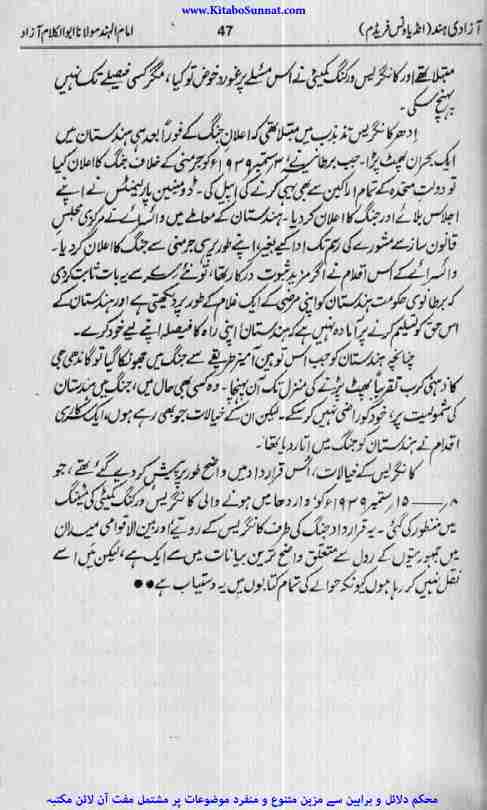 www.KitaboSunnat.com
آزادی ہند (انڈیا ونس فریڈم) 47 امام الہند مولانا ابوالکلام آزاد
مبتلا تھے اور کانگریس ورکنگ کمیٹی نے اس مسئلے پر غور و خوض تو کیا، مگر کسی فیصلے تک نہیں
پہنچ سکی۔
اِدھر کانگریس تذبذب میں مبتلا تھی کہ اعلانِ جنگ کے فوراً بعد ہی ہندستان میں
ایک بحران پھٹ پڑا۔ جب برطانیہ نے ۳؍ ستمبر ۱۹۳۹ء کو جرمنی کے خلاف جنگ کا اعلان کیا
تو دولتِ متحدہ کے تمام اراکین سے بھی یہی کرنے کی اپیل کی۔ ڈومنین پارلیمنٹس نے اپنے
اجلاس بلائے اور جنگ کا اعلان کر دیا۔ ہندستان کے معاملے میں وائسرائے نے مرکزی مجلسِ
قانون ساز سے مشورے کی رسم تک ادا کیے بغیر، اپنے طور پر ہی جرمنی سے جنگ کا اعلان کر دیا۔
وائسرائے کے اس اقدام نے اگر مزید ثبوت درکار تھا، تو نئے سرے سے یہ بات ثابت کر دی
کہ برطانوی حکومت ہندستان کو اپنی مرضی کے ایک غلام کے طور پر دیکھتی ہے اور ہندستان کے
اس حق کو تسلیم کرنے پر آمادہ نہیں ہے کہ ہندستان اپنی راہ کا فیصلہ اپنے لیے خود کرے۔
چنانچہ ہندستان کو جب اس توہین آمیز طریقے سے جنگ میں جھونکا گیا تو گاندھی جی
کا ذہنی کرب تقریباً پھٹ پڑنے کی منزل تک آن پہنچا۔ وہ کسی بھی حال میں، جنگ میں ہندستان
کی شمولیت پر خود کو راضی نہیں کر سکے۔ لیکن ان کے خیالات جو بھی رہے ہوں، ایک سرکاری
اقدام نے ہندستان کو جنگ میں اتار دیا تھا۔
کانگریس کے خیالات، اس قرارداد میں واضح طور پر پیش کر دیے گئے تھے، جو
۸؍ — ۱۵؍ ستمبر ۱۹۳۹ء کو واردھا میں ہونے والی کانگریس ورکنگ کمیٹی کی میٹنگ
میں منظور کی گئی۔ یہ قرارداد جنگ کی طرف کانگریس کے رویے اور بین الاقوامی میدان
میں جمہوریتوں کے رول سے متعلق واضح ترین بیانات میں سے ایک ہے، لیکن میں اسے
نقل نہیں کر رہا ہوں کیونکہ حوالے کی تمام کتابوں میں یہ دستیاب ہے ●●
محکم دلائل و براہین سے مزین متنوع و منفرد موضوعات پر مشتمل مفت آن لائن مکتبہ